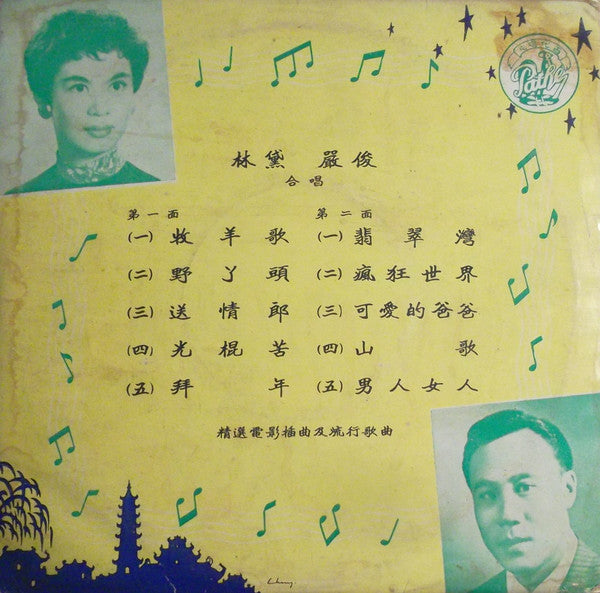 Pathé
林黛 嚴俊
合唱
第一面
(一) 牧羊歌
(二) 野丫頭
(三) 送情郎
(四) 光棍苦
(五) 拜年
第二面
(一) 翡翠灣
(二) 瘋狂世界
(三) 可愛的爸爸
(四) 山歌
(五) 男人女人
精選電影插曲及流行歌曲